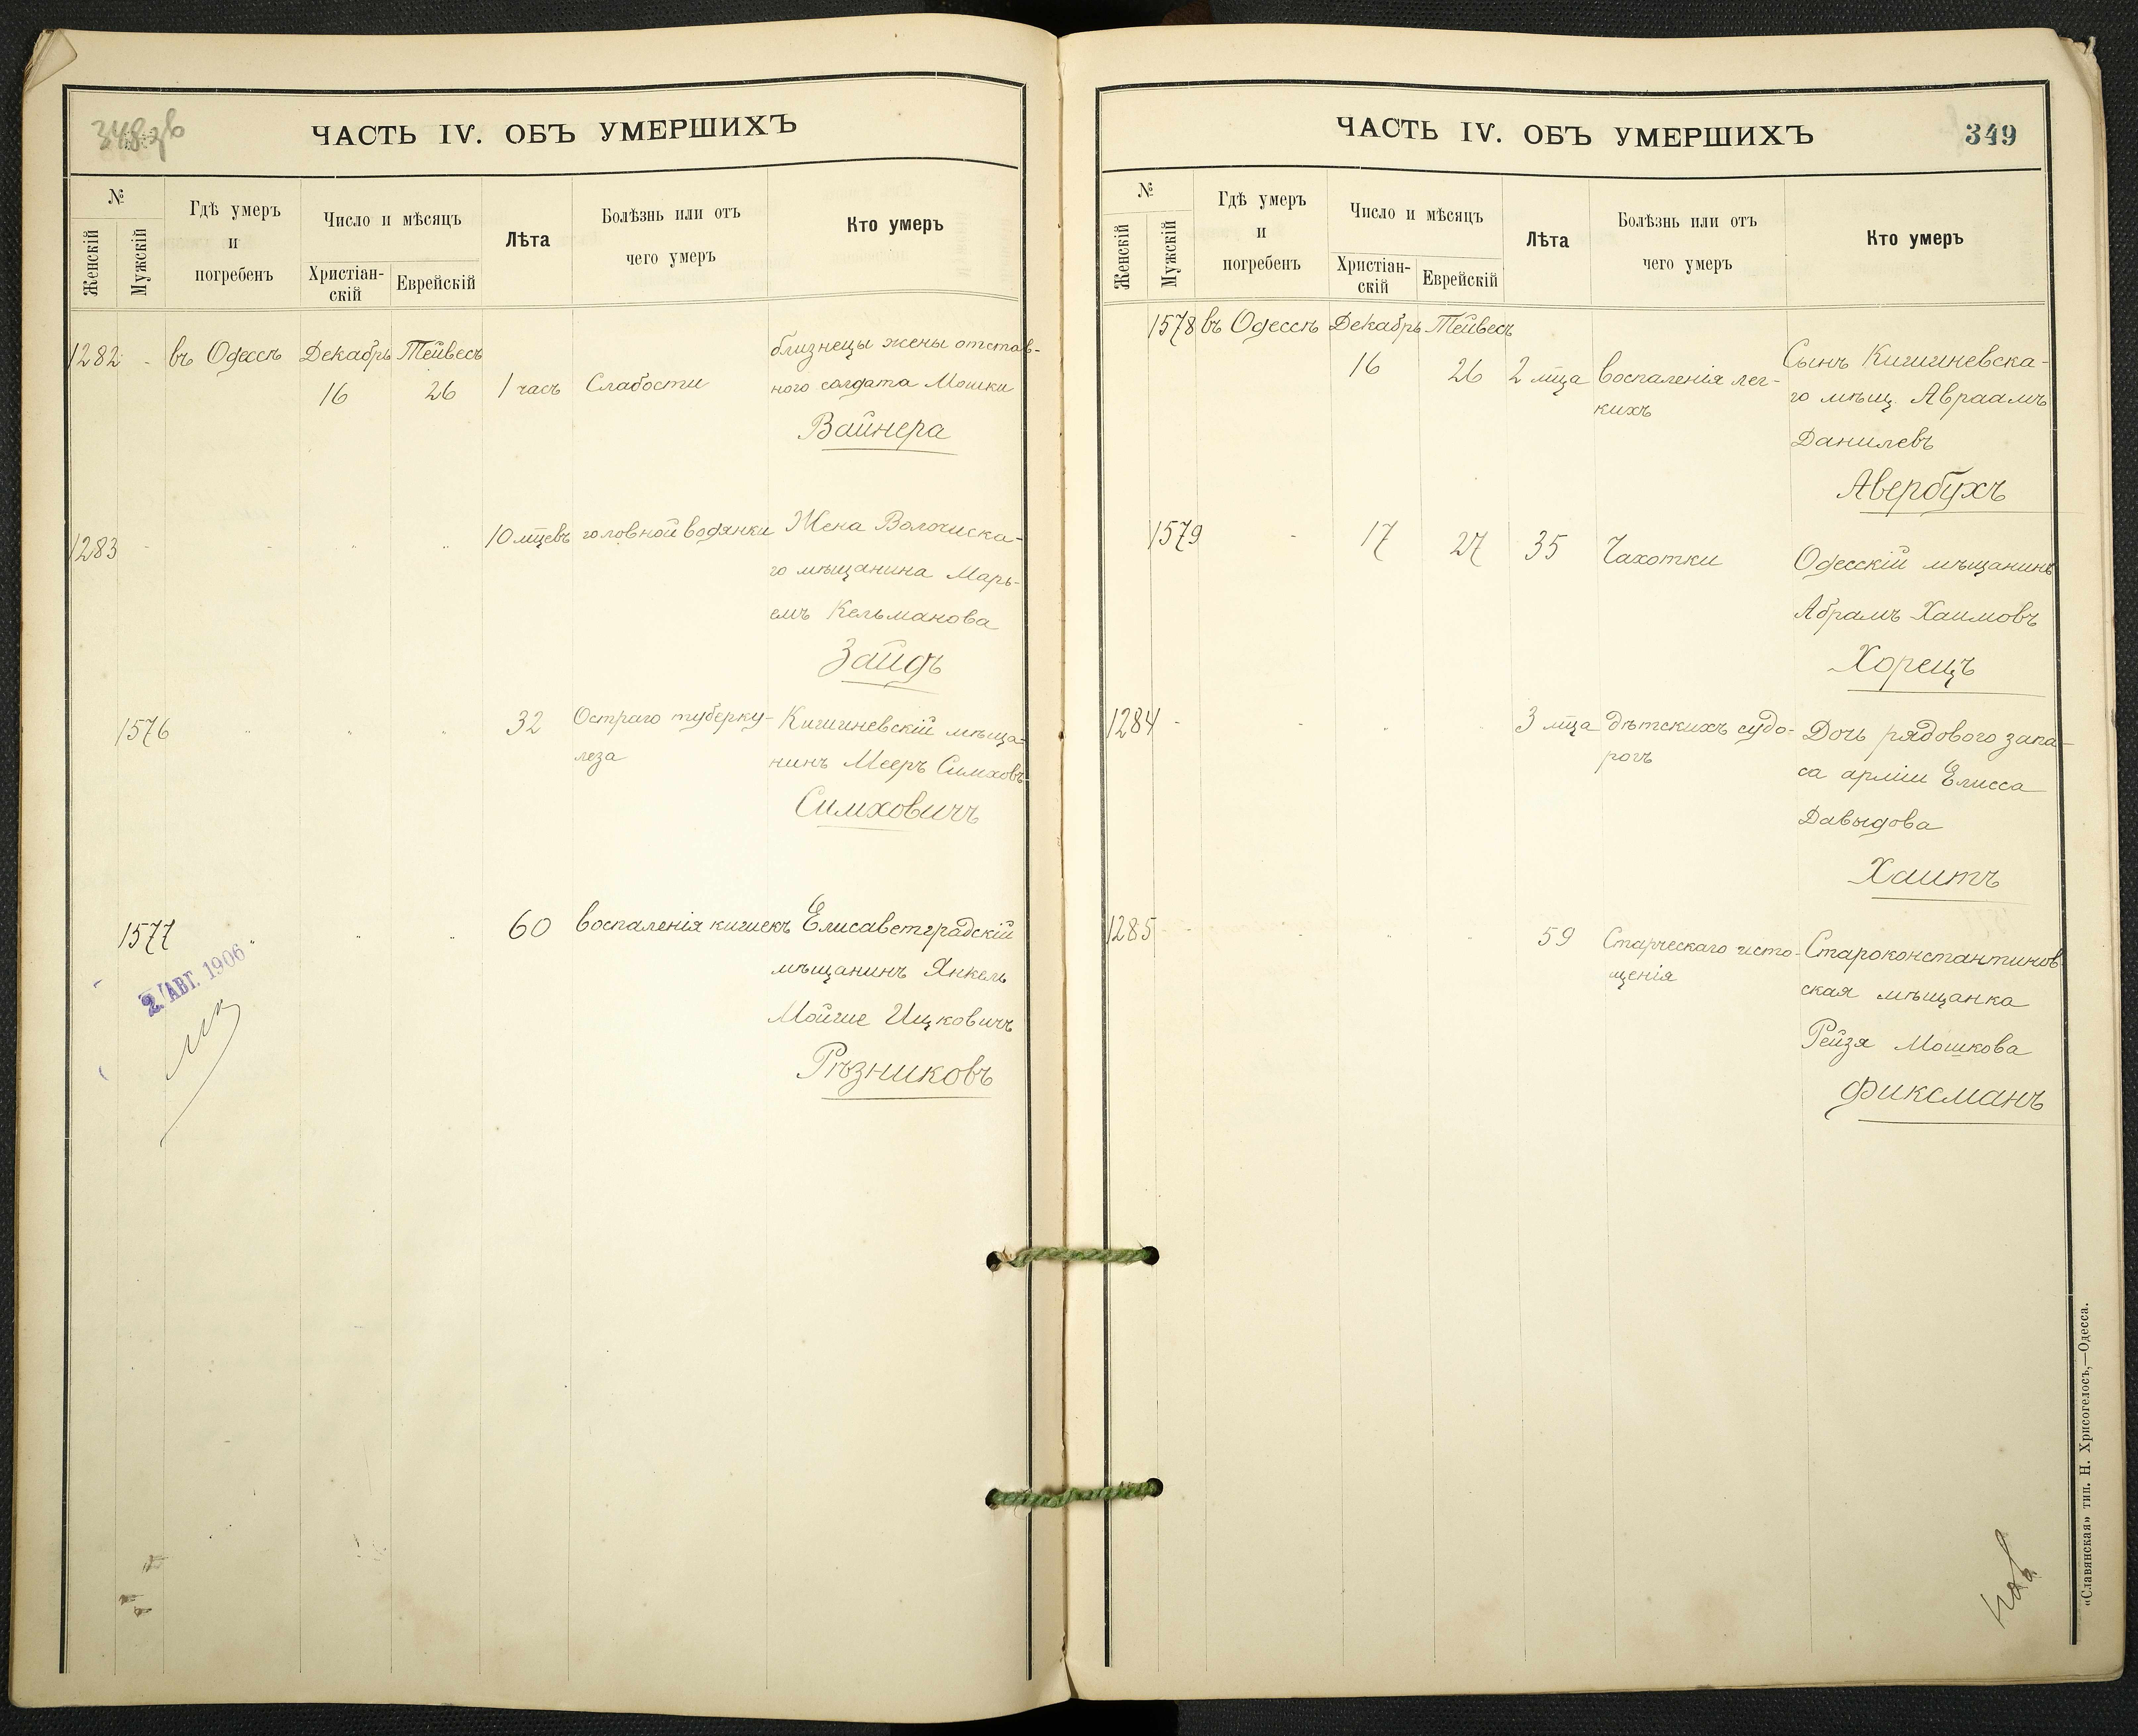 348 об
ЧАСТЬ IV. ОБЪ УМЕРШИХЪ
№
Женскій
Мужскій
Гдѣ умеръ
и
погребенъ
Число и мѣсяцъ
Христіан-
скій
Еврейскій
Лѣта
Болѣзнь или отъ
чего умеръ
Кто умеръ
1282 - въ Одессѣ Декабрь Тейвесъ близнецы жены отстав-
16 26 1 часъ Слабости ного солдата Мошки
Вайнера
1283 - - " " 10 мцевъ головной водянки Жена Волочиска-
го мѣщанина Марь-
емъ Кельманова
Зайдъ
1576 " " " 32 Остраго туберку- Кишиневскій мѣща-
леза нинъ Мееръ Симховъ
Симховичъ
1577 " " " 60 воспаленія кишекъ Елисаветградскій
мѣщанинъ Янкель
Мойше Ицковичъ
Рѣзниковъ
2 АВГ. 1906
ЧАСТЬ IV. ОБЪ УМЕРШИХЪ
349
№
Женскій
Мужскій
Гдѣ умеръ
и
погребенъ
Число и мѣсяцъ
Христіан-
скій
Еврейскій
Лѣта
Болѣзнь или отъ
чего умеръ
Кто умеръ
1578 въ Одессѣ Декабрь Тейвесъ
16 26 2 мца воспаленія лег- Сынъ Кишиневска-
кихъ го мѣщ. Авраамъ
Данилевъ
Авербухъ
1579 - 17 27 35 Чахотки Одесскій мѣщанинъ
Абрамъ Хаимовъ
Хорецъ
1284 - - - - 3 мца дѣтскихъ судо- Дочь рядового запа-
рогъ са арміи Елисса
Давыдова
Хаитъ
1285 - - - - 59 Старческаго исто- Староконстантинов-
щенія ская мѣщанка
Рейзя Мошкова
Фиксманъ
«Славянская» тип. Н. Хрисогелосъ,—Одесса.